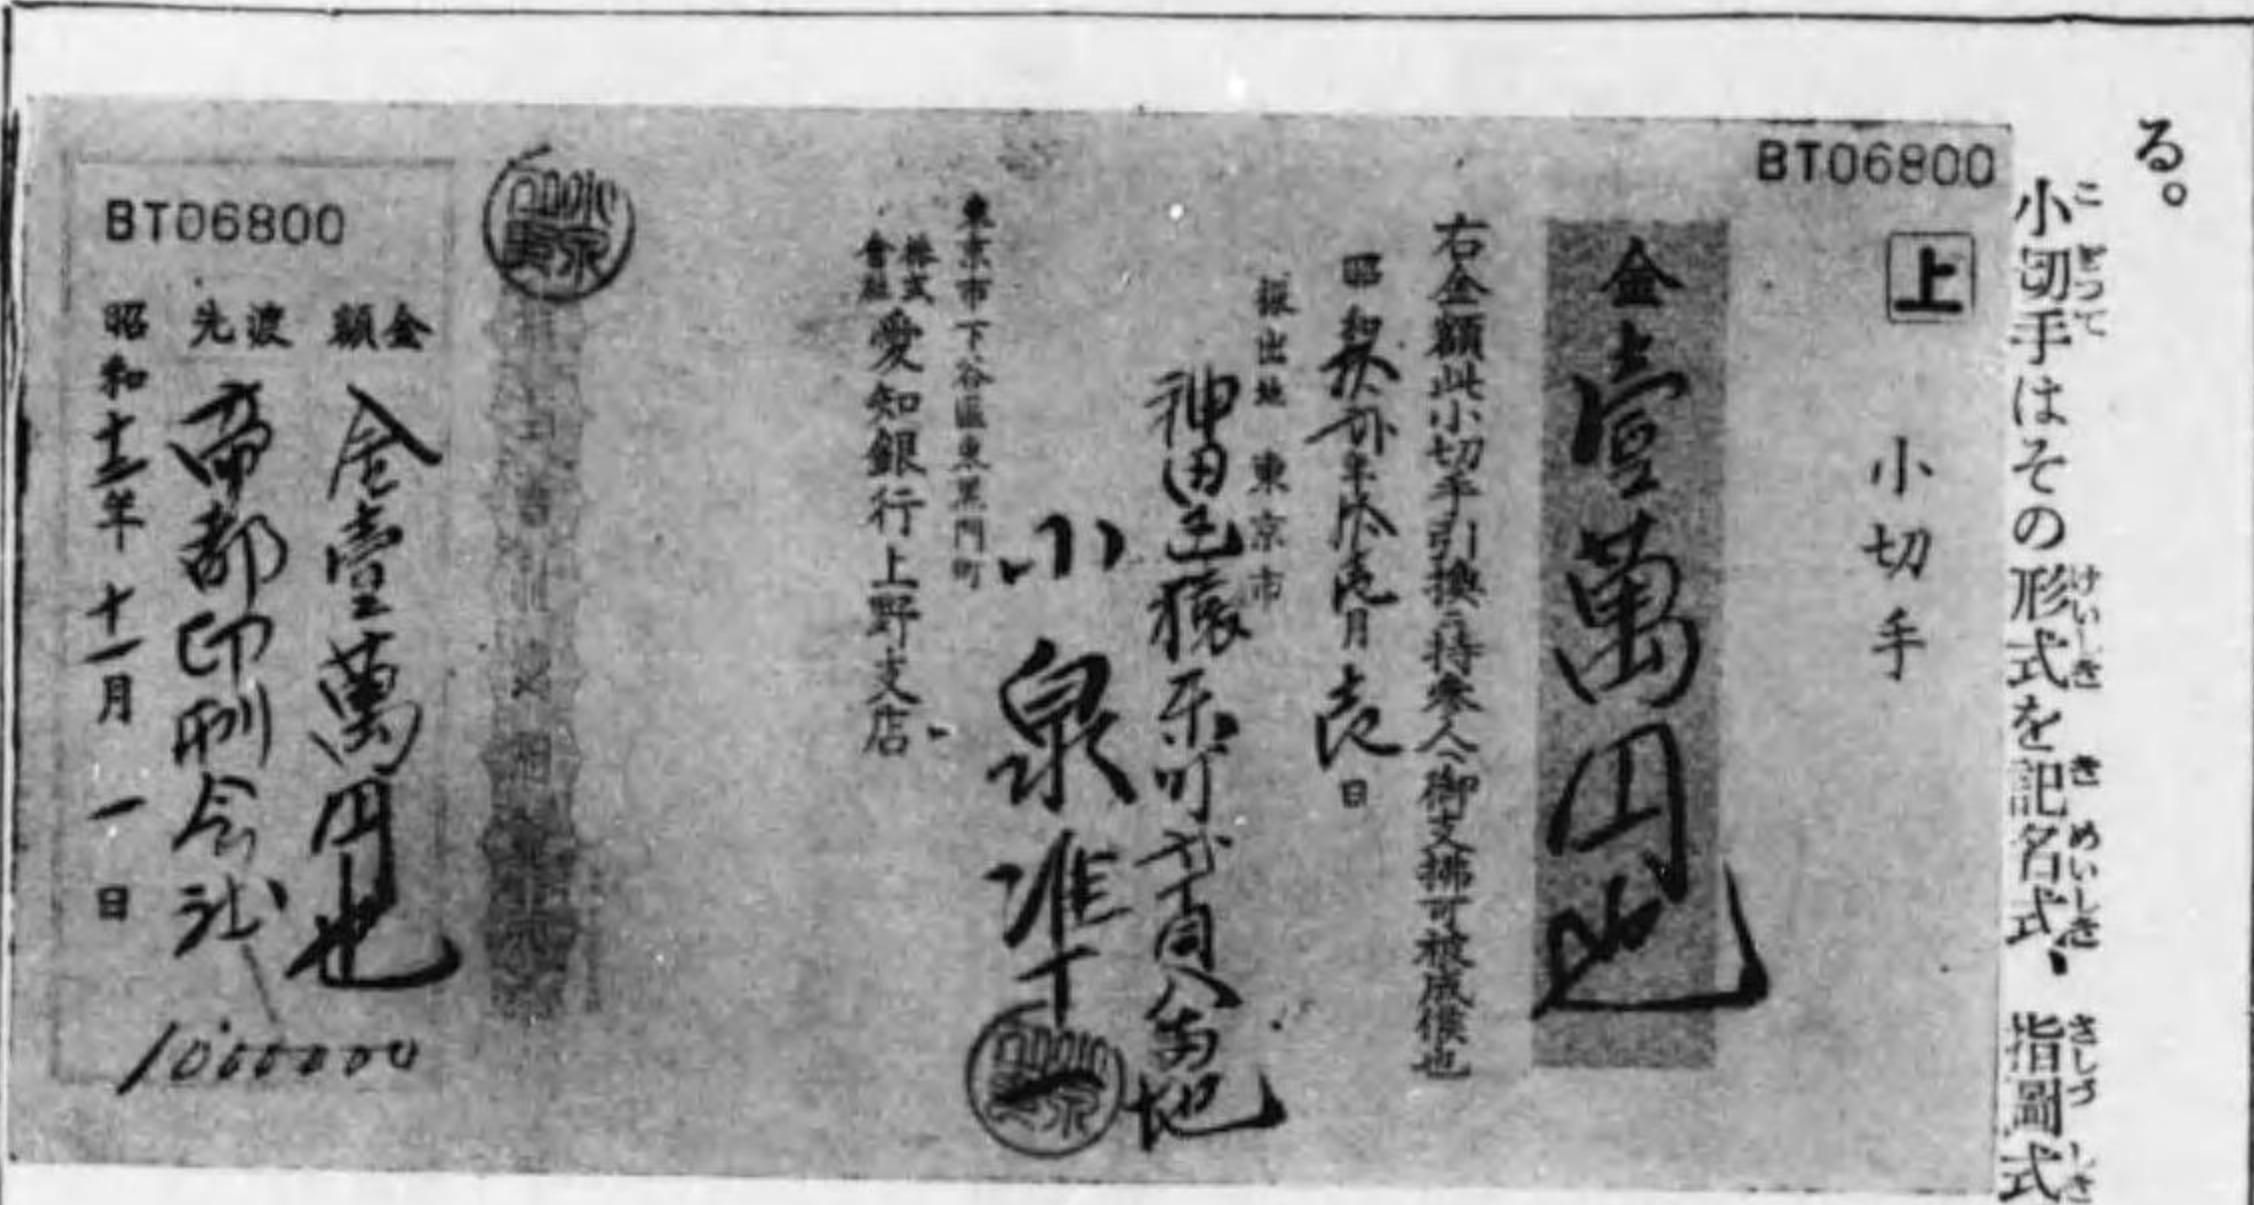 る。
小切手はその形式を記名式、指圖式
BT06800
上
小切手
金壹萬円也
右金額此小切手引換ニ持参人ヘ御支拂可被成候也
昭和拾弐年拾壱月壱日
振出地 東京市
神田区猿楽町弐丁目八番地
小泉準一
東京市下谷區東黒門町
株式會社愛知銀行上野支店
BT06800
金額 金壹萬円也
渡先 帝都印刷会社
昭和十二年十一月一日